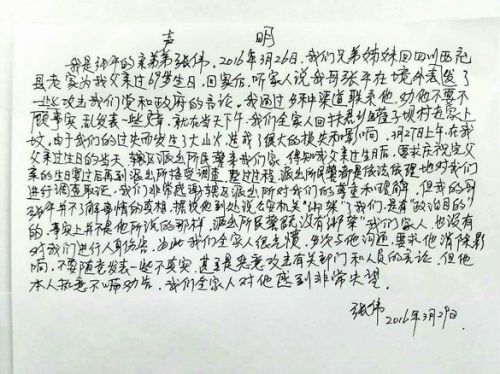 声 明
我是张平的亲弟弟张伟，2016年3月26日，我们兄弟姊妹回四川西充
县老家为我父亲过69岁生日，回家后，听家人说我哥张平在境外发
一些攻击我们党和政府的言论，我通过多种渠道联系他，劝他不要不
顾事实，乱发表一些，就在当天下午，我们全家人回扶君乡管子坝村老家上
坟，由于我们的过失而发生了大山火，造成了很大的损失和影响，3月27日上午，在我
父亲过生日的当天，辖区派出所民警来我们家，得知我父亲过生日后，要求庆祝完父
亲的生日宴过后再到派出所接受调查，整过过程，派出所民警都是依法依理地对我们
进行调查取证，我们非常感谢辖区派出所对我们的尊重和理解，但我的哥
张平并不了解事情的真相，据他到处说公安机关“绑架”了我们，是有“政治目的”
的，事实上并不是他所说的那样，派出所民警既没有“绑架”我们家人，也没有
对我们进行人身伤害，为此我们全家人很气愤，多次与他沟通，要求他消除影
响，不要随意发表一些不真实，甚至是恶意攻击有关部门和人员的言论，但他
本人执意不听劝告，我们全家人对他感到非常失望。
张伟
2016年3月29日